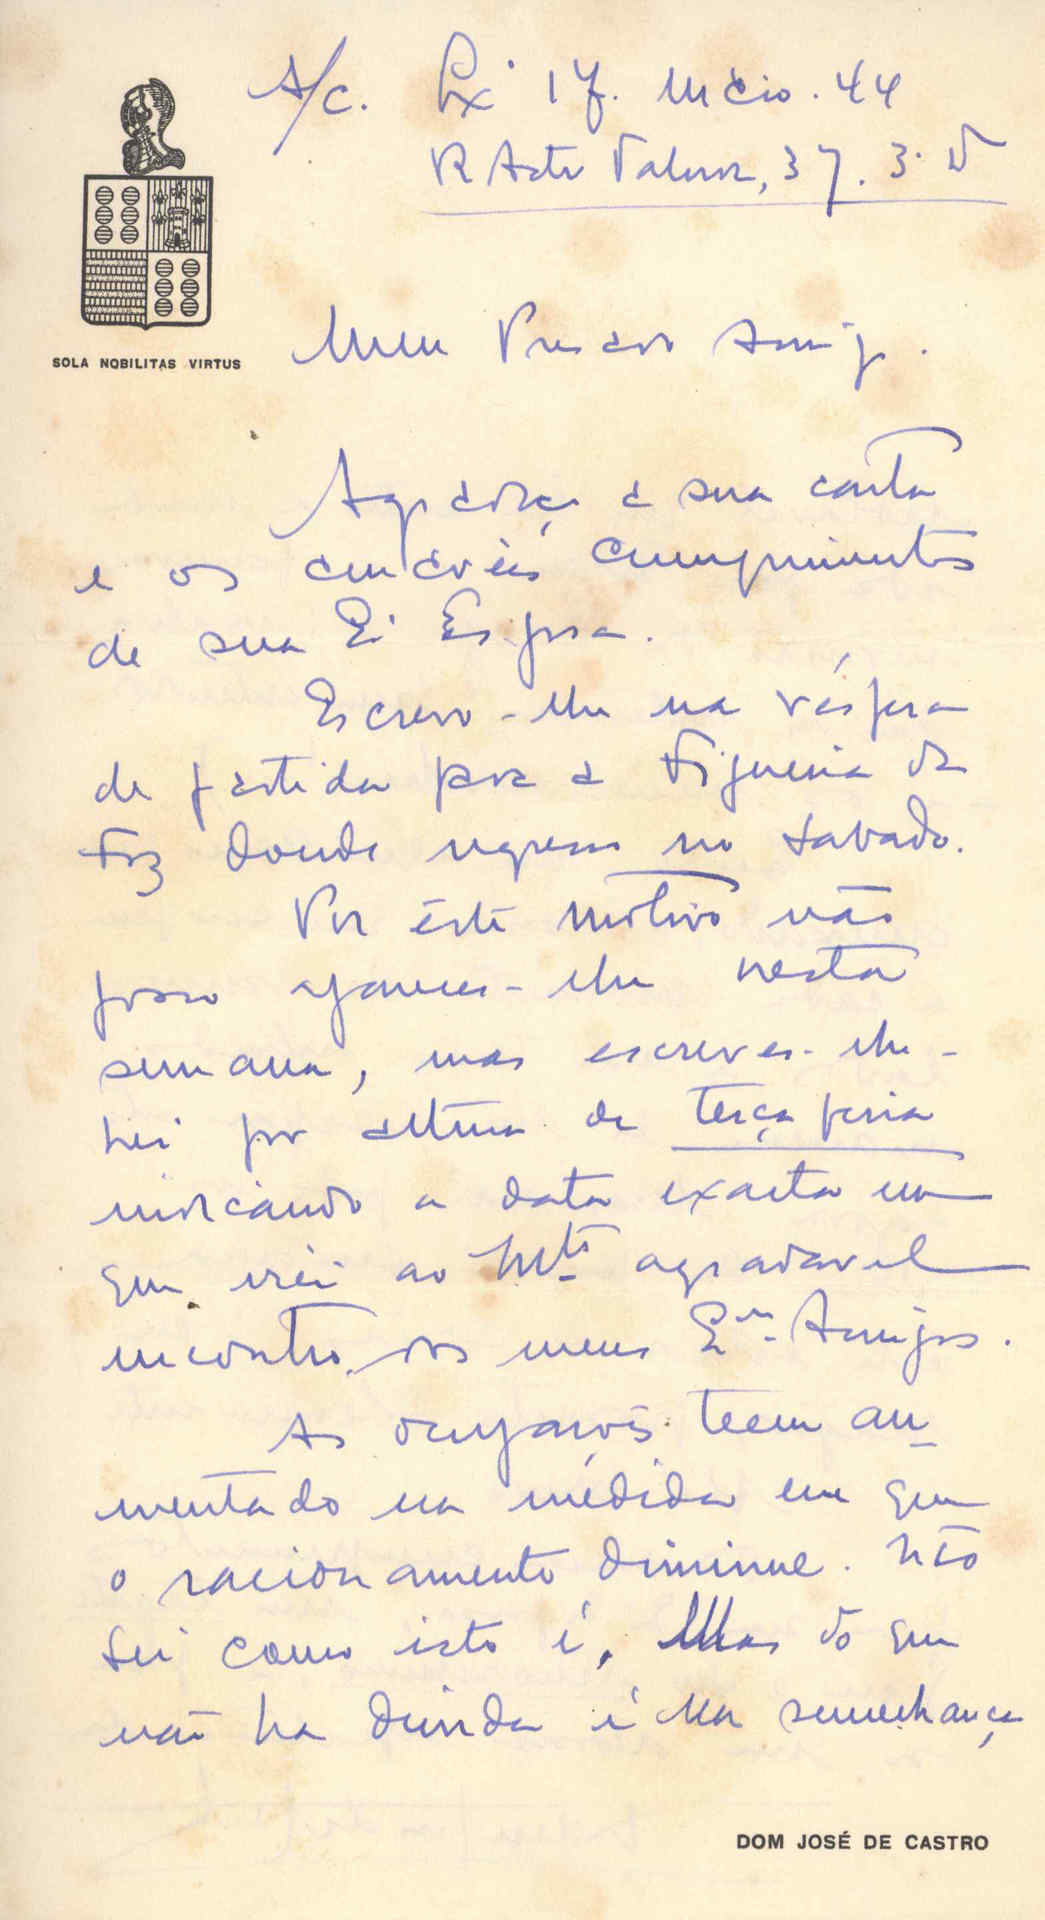 A/c. Lx. 17. Maio. 44
R Actor Valerio, 37. 3. D
SOLA NOBILITAS VIRTUS
Meu Presado Amigo.
Agradeço a sua carta
e os amaveis cumprimentos
de sua Esposa.
Escrevo-lhe na véspera
de partida para a Figueira da
Foz donde regresso no sabado.
Por êste motivo não
posso aparecer-lhe nesta
semana, mas escrever-lhe-
hei por altura de terça feira
indicando a data exacta em
que irei ao Mto. agradavel
encontro dos meus Exmos. Amigos.
As ocupações teem au-
mentado na médida em que
o racionamento diminue. Não
sei como isto é, Mas do que
não ha duvida é na semelhança
DOM JOSÉ DE CASTRO